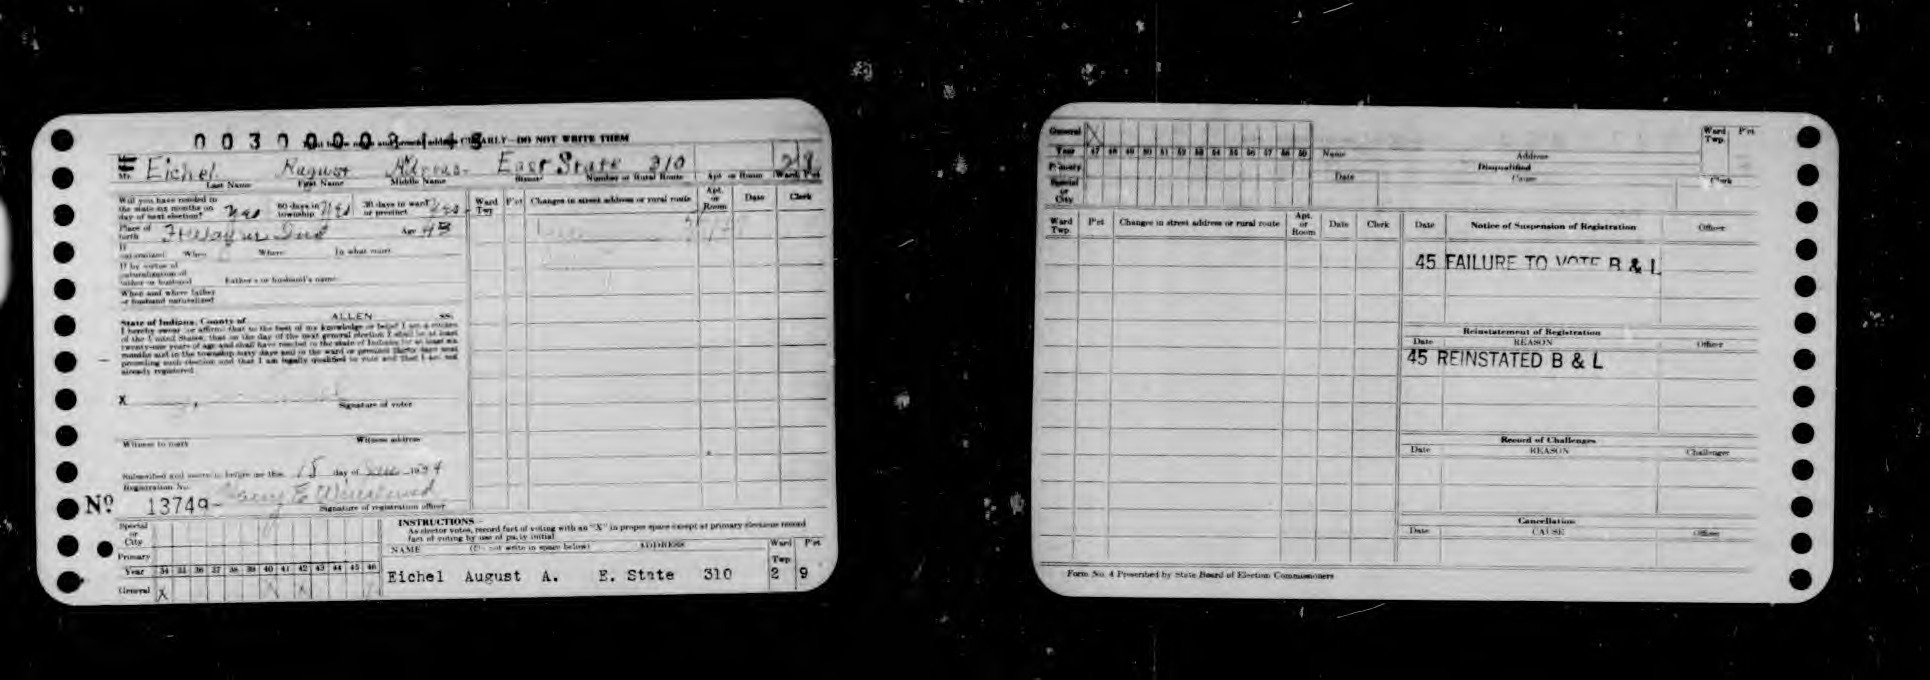 0030000 8145
CLEARLY—DO NOT WRITE THEM
Mr. Eichel August East State 310 2 9
Last Name First Name Middle Name Street Number or Rural Route Apt. or Room Ward P'ct
Will you have resided in the state six months on day of next election? Yes 60 days in township Yes 30 days in ward or precinct Yes
Place of birth Ft Wayne Ind Age 43
If naturalized When Where In what court
If by virtue of naturalization of father or husband Father's or husband's name
When and where father or husband naturalized
State of Indiana, County of ALLEN ss.
I hereby swear or affirm that to the best of my knowledge or belief I am a citizen
of the United States; that on the day of the next general election I shall be at least
twenty-one years of age and shall have resided in the state of Indiana for at least six
months and in the township sixty days and in the ward or precinct thirty days next
preceding such election and that I am legally qualified to vote and that I am not
already registered.
X
Signature of voter
Witness to mark Witness address
Subscribed and sworn to before me this 15 day of 1934
Registration No.
No. 13749-
Signature of registration officer
Ward Twp P'ct Changes in street address or rural route Apt. or Room Date Clerk
Special or City
Primary
Year 34 35 36 37 38 39 40 41 42 43 44 45 46
General X X X
INSTRUCTIONS—
As elector votes, record fact of voting with an "X" in proper space except at primary elections record
fact of voting by use of party initial
NAME (Do not write in space below) ADDRESS Ward Twp P'ct
Eichel August A. E. State 310 2 9
General X
Year 47 48 49 50 51 52 53 54 55 56 57 58 59
Primary
Special or City
Name Address Ward Twp. P'ct
Disqualified
Date Cause Clerk
Ward Twp. P'ct Changes in street address or rural route Apt. or Room Date Clerk
Date Notice of Suspension of Registration Officer
45 FAILURE TO VOTE B & L
Reinstatement of Registration
Date REASON Officer
45 REINSTATED B & L
Record of Challenges
Date REASON Challenger
Cancellation
Date CAUSE Officer
Form No. 4 Prescribed by State Board of Election Commissioners